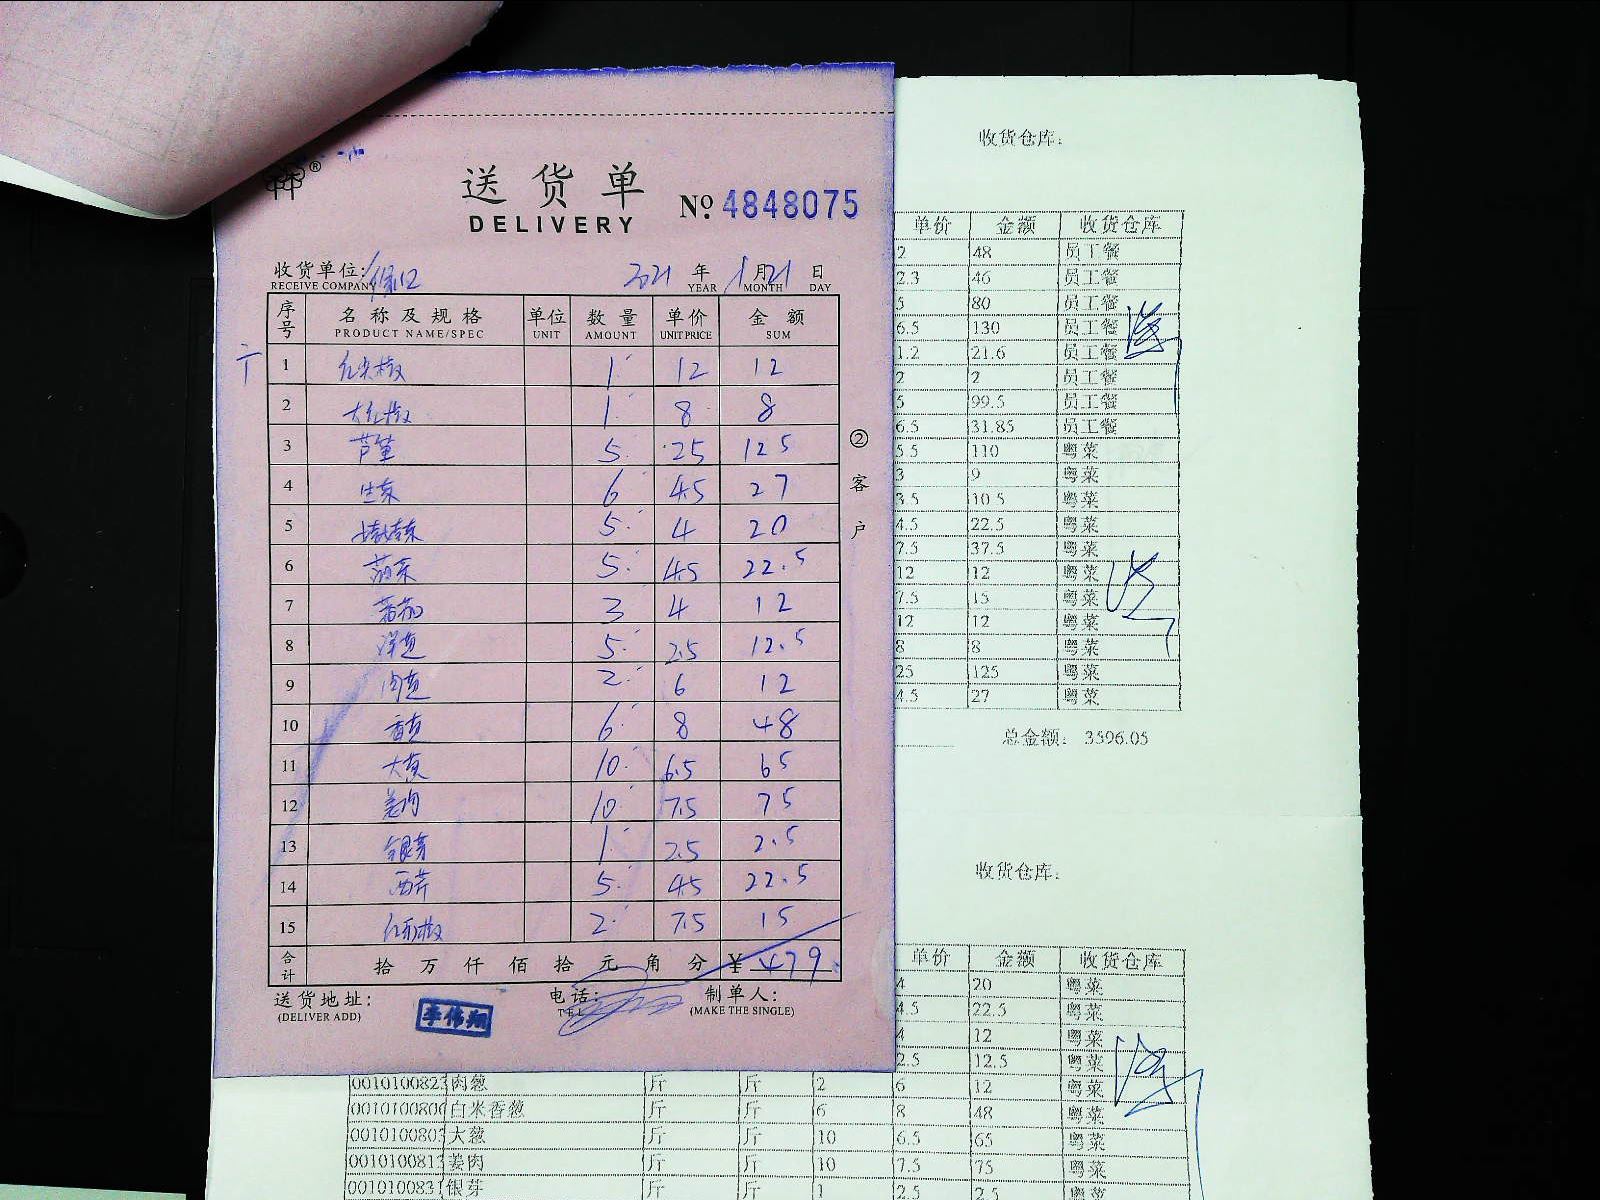 送货单
DELIVERY
№ 4848075
收货单位:
RECEIVE COMPANY
2021 年 YEAR 1 月 MONTH 21 日 DAY
序号 名称及规格 单位 数量 单价 金额
PRODUCT NAME/SPEC UNIT AMOUNT UNIT PRICE SUM
1 红尖椒 1 12 12
2 大红椒 1 8 8
3 芦笋 5 25 125
4 生菜 6 4.5 27
5 5 4 20
6 5 4.5 22.5
7 蕃茄 3 4 12
8 洋葱 5 2.5 12.5
9 肉葱 2 6 12
10 香葱 6 8 48
11 大葱 10 6.5 65
12 姜肉 10 7.5 75
13 银芽 1 2.5 2.5
14 西芹 5 4.5 22.5
15 2 7.5 15
合计 拾 万 仟 佰 拾 元 角 分 ¥ 479
送货地址: 电话: 制单人:
(DELIVER ADD) TEL (MAKE THE SINGLE)
李伟翔
②客户
收货仓库:
单价 金额 收货仓库
2 48 员工餐
2.3 46 员工餐
5 80 员工餐
6.5 130 员工餐
1.2 21.6 员工餐
2 2 员工餐
5 99.5 员工餐
6.5 31.85 员工餐
5.5 110 粤菜
3 9 粤菜
3.5 10.5 粤菜
4.5 22.5 粤菜
7.5 37.5 粤菜
12 12 粤菜
7.5 15 粤菜
12 12 粤菜
8 8 粤菜
25 125 粤菜
4.5 27 粤菜
总金额: 3596.05
收货仓库:
单价 金额 收货仓库
4 20 粤菜
4.5 22.5 粤菜
4 12 粤菜
2.5 12.5 粤菜
0010100823 肉葱 斤 斤 2 6 12 粤菜
0010100806 白米香葱 斤 斤 6 8 48 粤菜
0010100803 大葱 斤 斤 10 6.5 65 粤菜
0010100813 姜肉 斤 斤 10 7.5 75 粤菜
0010100831 银芽 斤 斤 1 2.5 2.5 粤菜